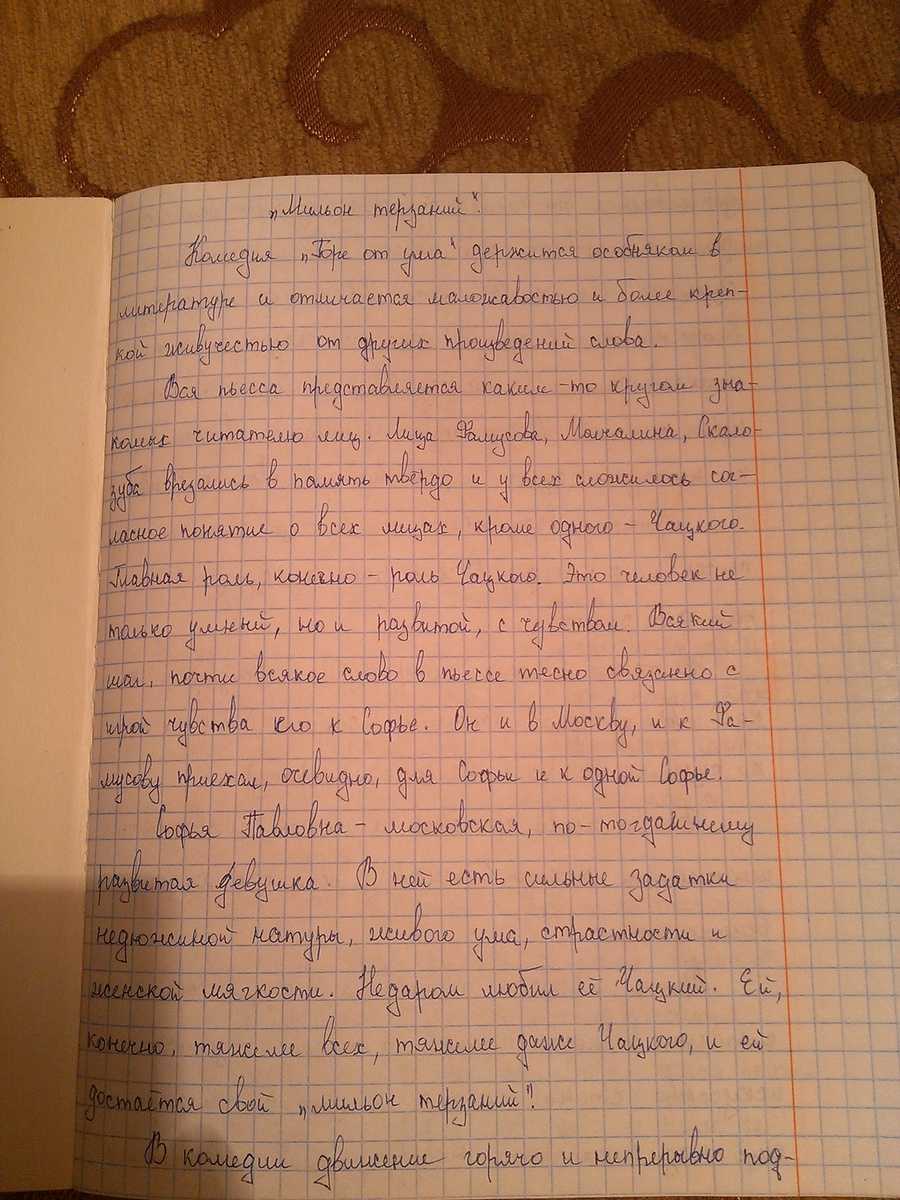 „Мильон терзаний".
Комедия „Горе от ума" держится особняком в
литературе и отличается моложавостью и более креп-
кой живучестью от других произведений слова.
Вся пьесса представляется каким-то кругом зна-
комых читателю лиц. Лица Фамусова, Молчалина, Скало-
зуба врезались в память твёрдо и у всех сложилось сог-
ласное понятие о всех лицах, кроме одного - Чацкого.
Главная роль, конечно - роль Чацкого. Это человек не
только умный, но и развитой, с чувством. Всякий
шаг, почти всякое слово в пьессе тесно связанно с
игрой чувства его к Софье. Он и в Москву, и к Фа-
мусову приехал, очевидно, для Софьи и к одной Софье.
Софья Павловна - московская, по-тогдашнему
развитая девушка. В ней есть сильные задатки
недюжиной натуры, живого ума, страстности и
женской мягкости. Недаром любил её Чацкий. Ей,
конечно, тяжелее всех, тяжелее даже Чацкого, и ей
достаётся свой „мильон терзаний"!
В комедии движение горячо и непрерывно под-